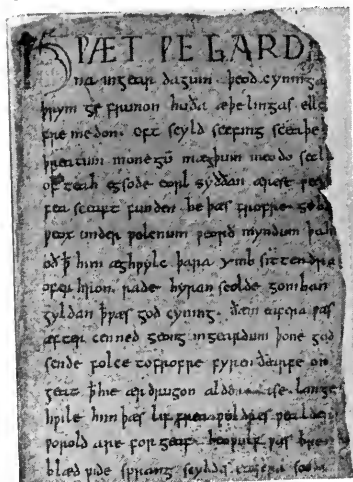 HǷÆT ǷE GARDE
na ingear dagum. þeod cyninga
þrym ge frunon huða æþelingas elle
fremedon. oft scyld scefing sceaþe
þreatum monegū mægþum meodo setla
of teah egsode eorl syððan ærest ƿearð
fea sceaft funden. he þæs frofre gebad
ƿeox under ƿolcnum ƿeorð myndum þah
oð þ him æghƿylc þara ymb sittendra
ofer hron rade hyran scolde gomban
gyldan þ ƿæs god cyning. ðæm eafera ƿæs
æfter cenned geong ingeardum þone god
sende folce tofrofre fyren ðearfe on
geat þhie ær drugon aldor
se. lange
hƿile him þæs lif frea ƿuldres ƿealdend
ƿorold are for geaf. beoƿulf ƿæs breme
blæd ƿide sprang scyldes eafera